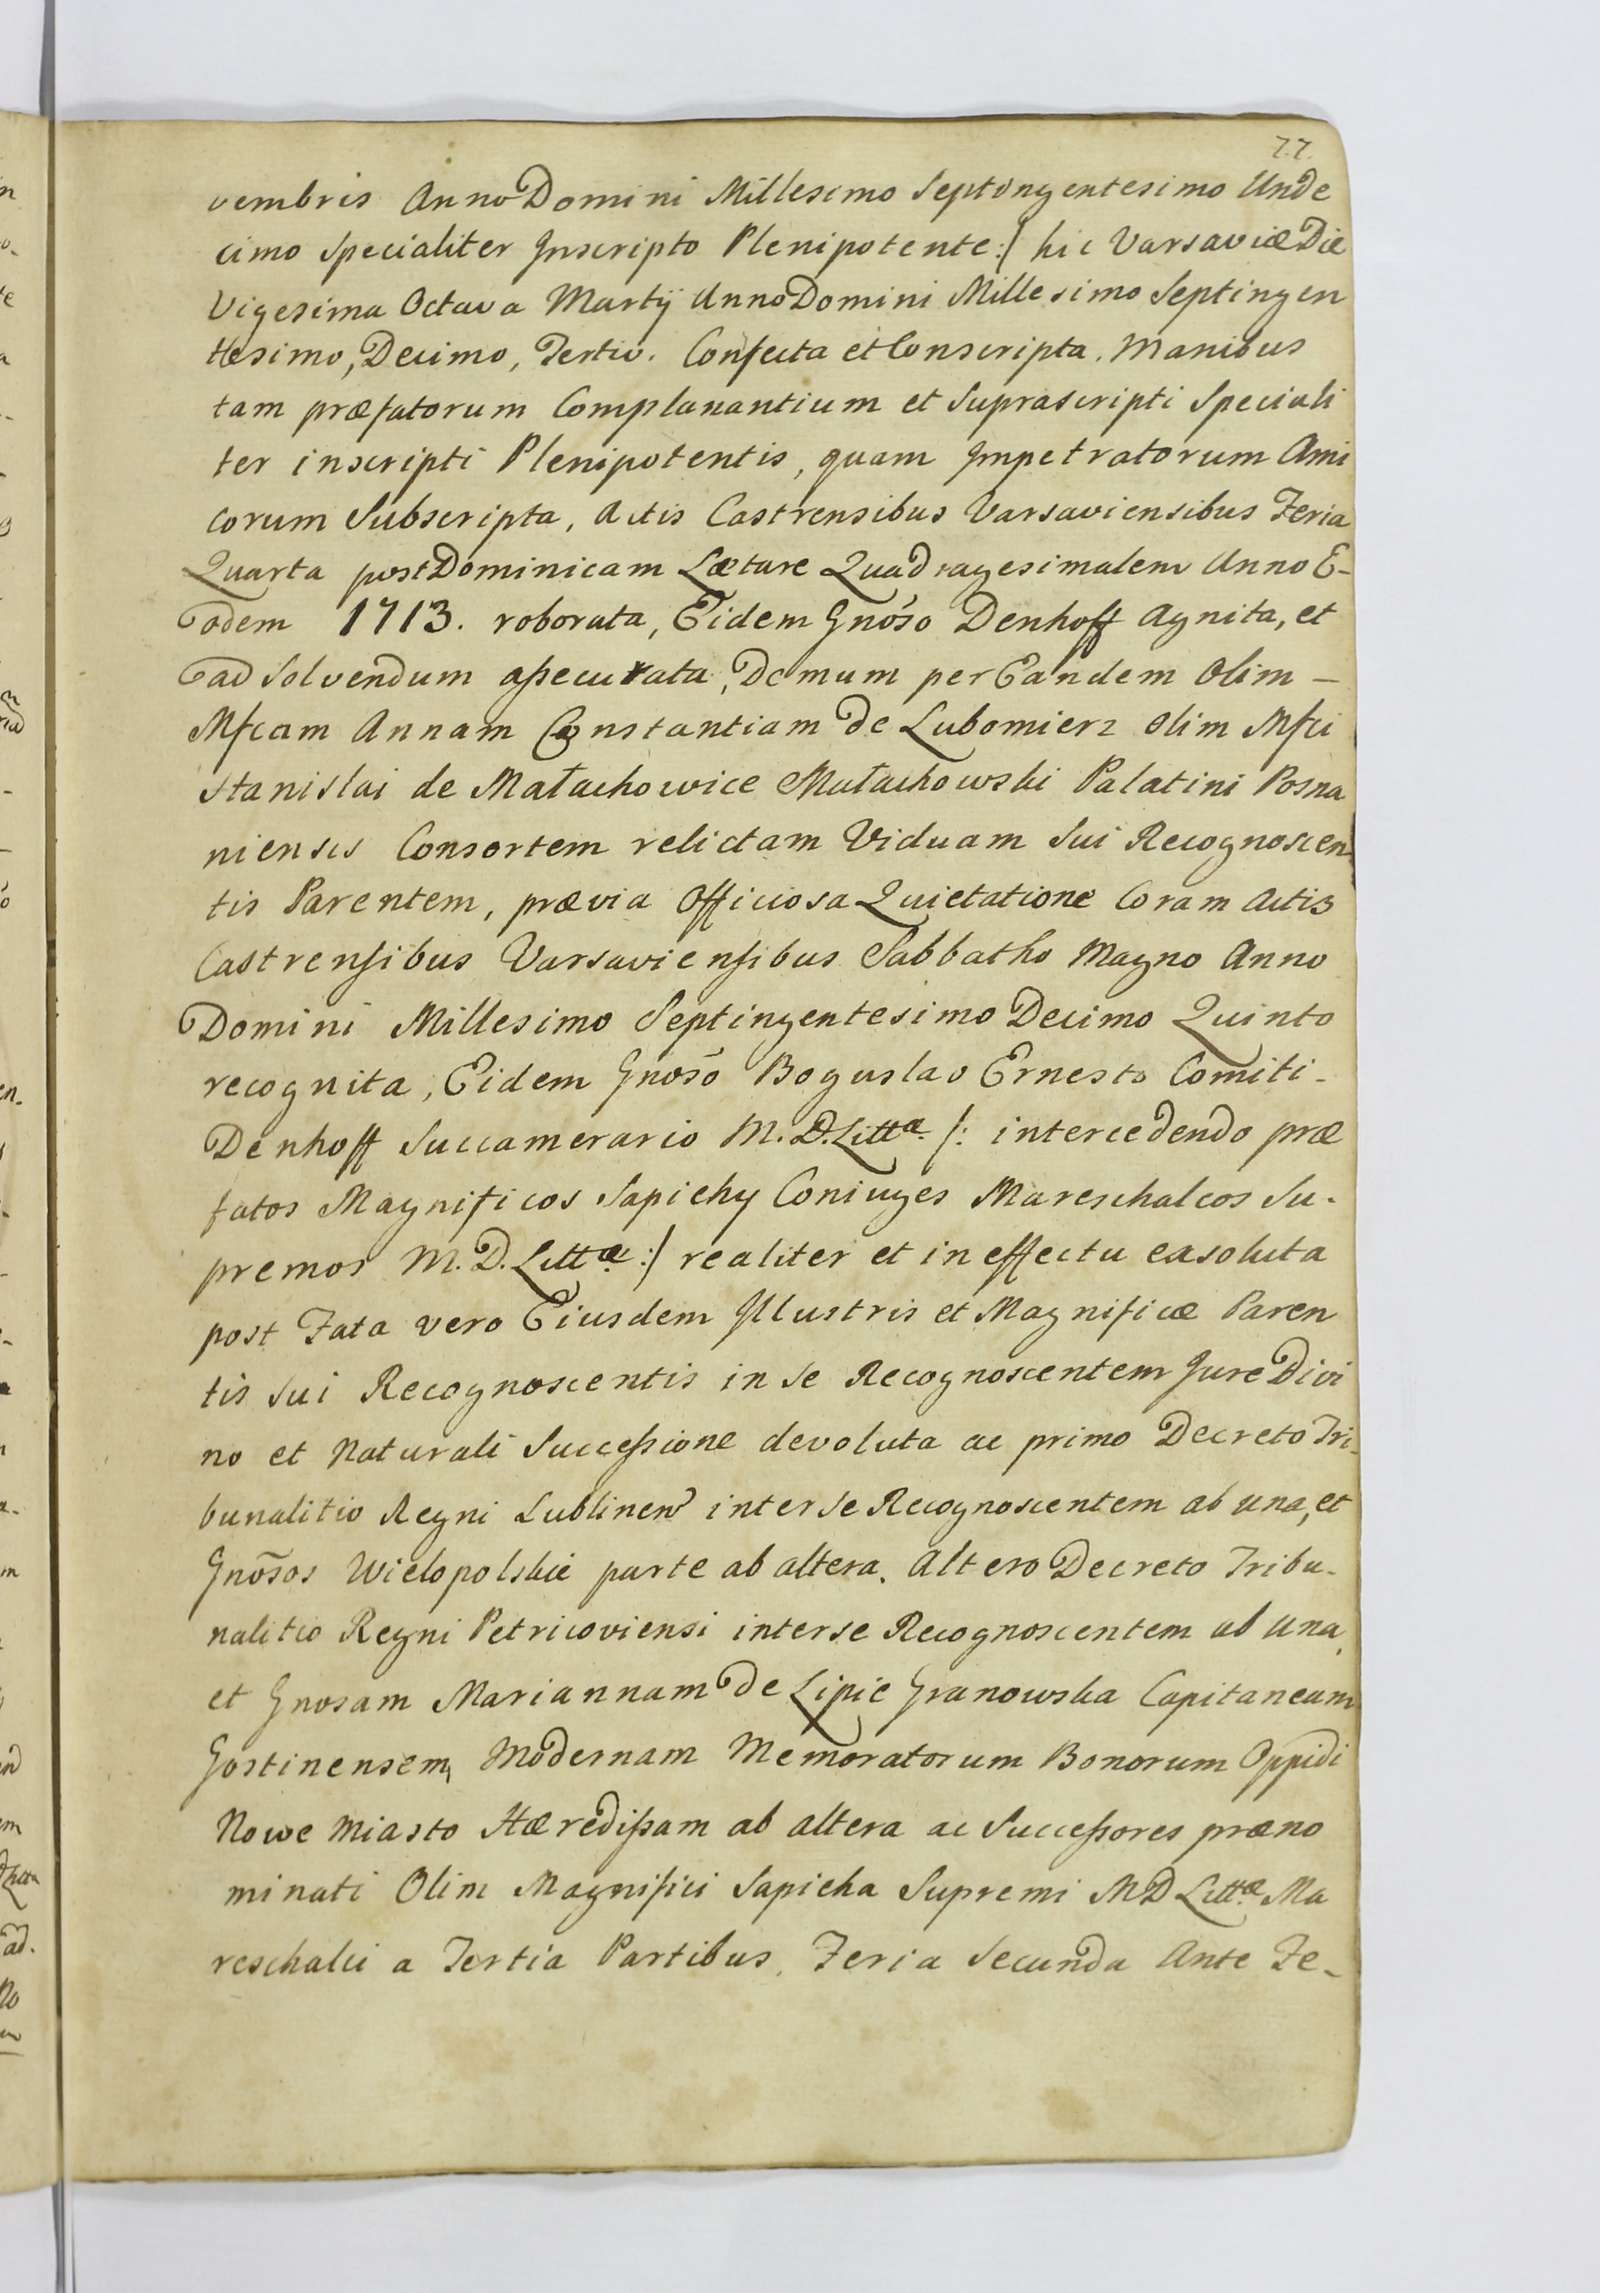 77.
vembris Anno Domini Millesimo Septingentesimo Unde
cimo Specialiter Inscripto Plenipotente :/ hic Varsaviæ Die
Vigesima Octava Martÿ Anno Domini Millesimo Septingen
tesimo, Decimo, Tertio. Confecta et Conscripta. Manibus
tam præfatorum Complanantium et Suprascripti Speciali
ter inscripti Plenipotentis, quam Impetratorum Ami
corum Subscripta, Actis Castrensibus Varsaviensibus Feria
Quarta post Dominicam Lætare Quadragesimalem Anno E-
odem 1713. roborata, Eidem Gnoso Denhoff Agnita, et
ad Solvendum assecurata, Demum per Eandem Olim –
Mfcam Annam Constantiam de Lubomierz olim Mfci
Stanislai de Małachowice Małachowski Palatini Posna
niensis Consortem relictam Viduam Sui Recognoscen
tis Parentem, prævia Officiosa Quietatione Coram Actis
Castrensibus Varsaviensibus Sabbatho Magno Anno
Domini Millesimo Septingentesimo Decimo Quinto
recognita, Eidem Gnoso Boguslao Ernesto Comiti -
Denhoff Succamerario M. D. Littæ. /: intercedendo præ
fatos Magnificos Sapiehy Coniuges Mareschalcos Su-
premos M. D. Littæ :/ realiter et in effectu exsoluta
post Fata vero Eiusdem Illustris et Magnificæ Paren
tis Sui Recognoscentis in se Recognoscentem Jure Divi
no et Naturali Successione devoluta ac primo Decreto Tri-
bunalitio Regni Lublinen inter se Recognoscentem ab una, et
Gnosos Wielopolskie parte ab altera. Altero Decreto Tribu-
nalitio Regni Petricoviensi inter se Recognoscentem ab una,
et Gnosam Mariannam de Lipie Granowska Capitaneam
Gostinensem, Modernam Memoratorum Bonorum Oppidi
Nowe Miasto Hæredissam ab altera ac Successores præno
minati Olim Magnifici Sapieha Supremi M D Littæ Ma
reschalci a Tertia Partibus, Feria Secunda Ante Fe-